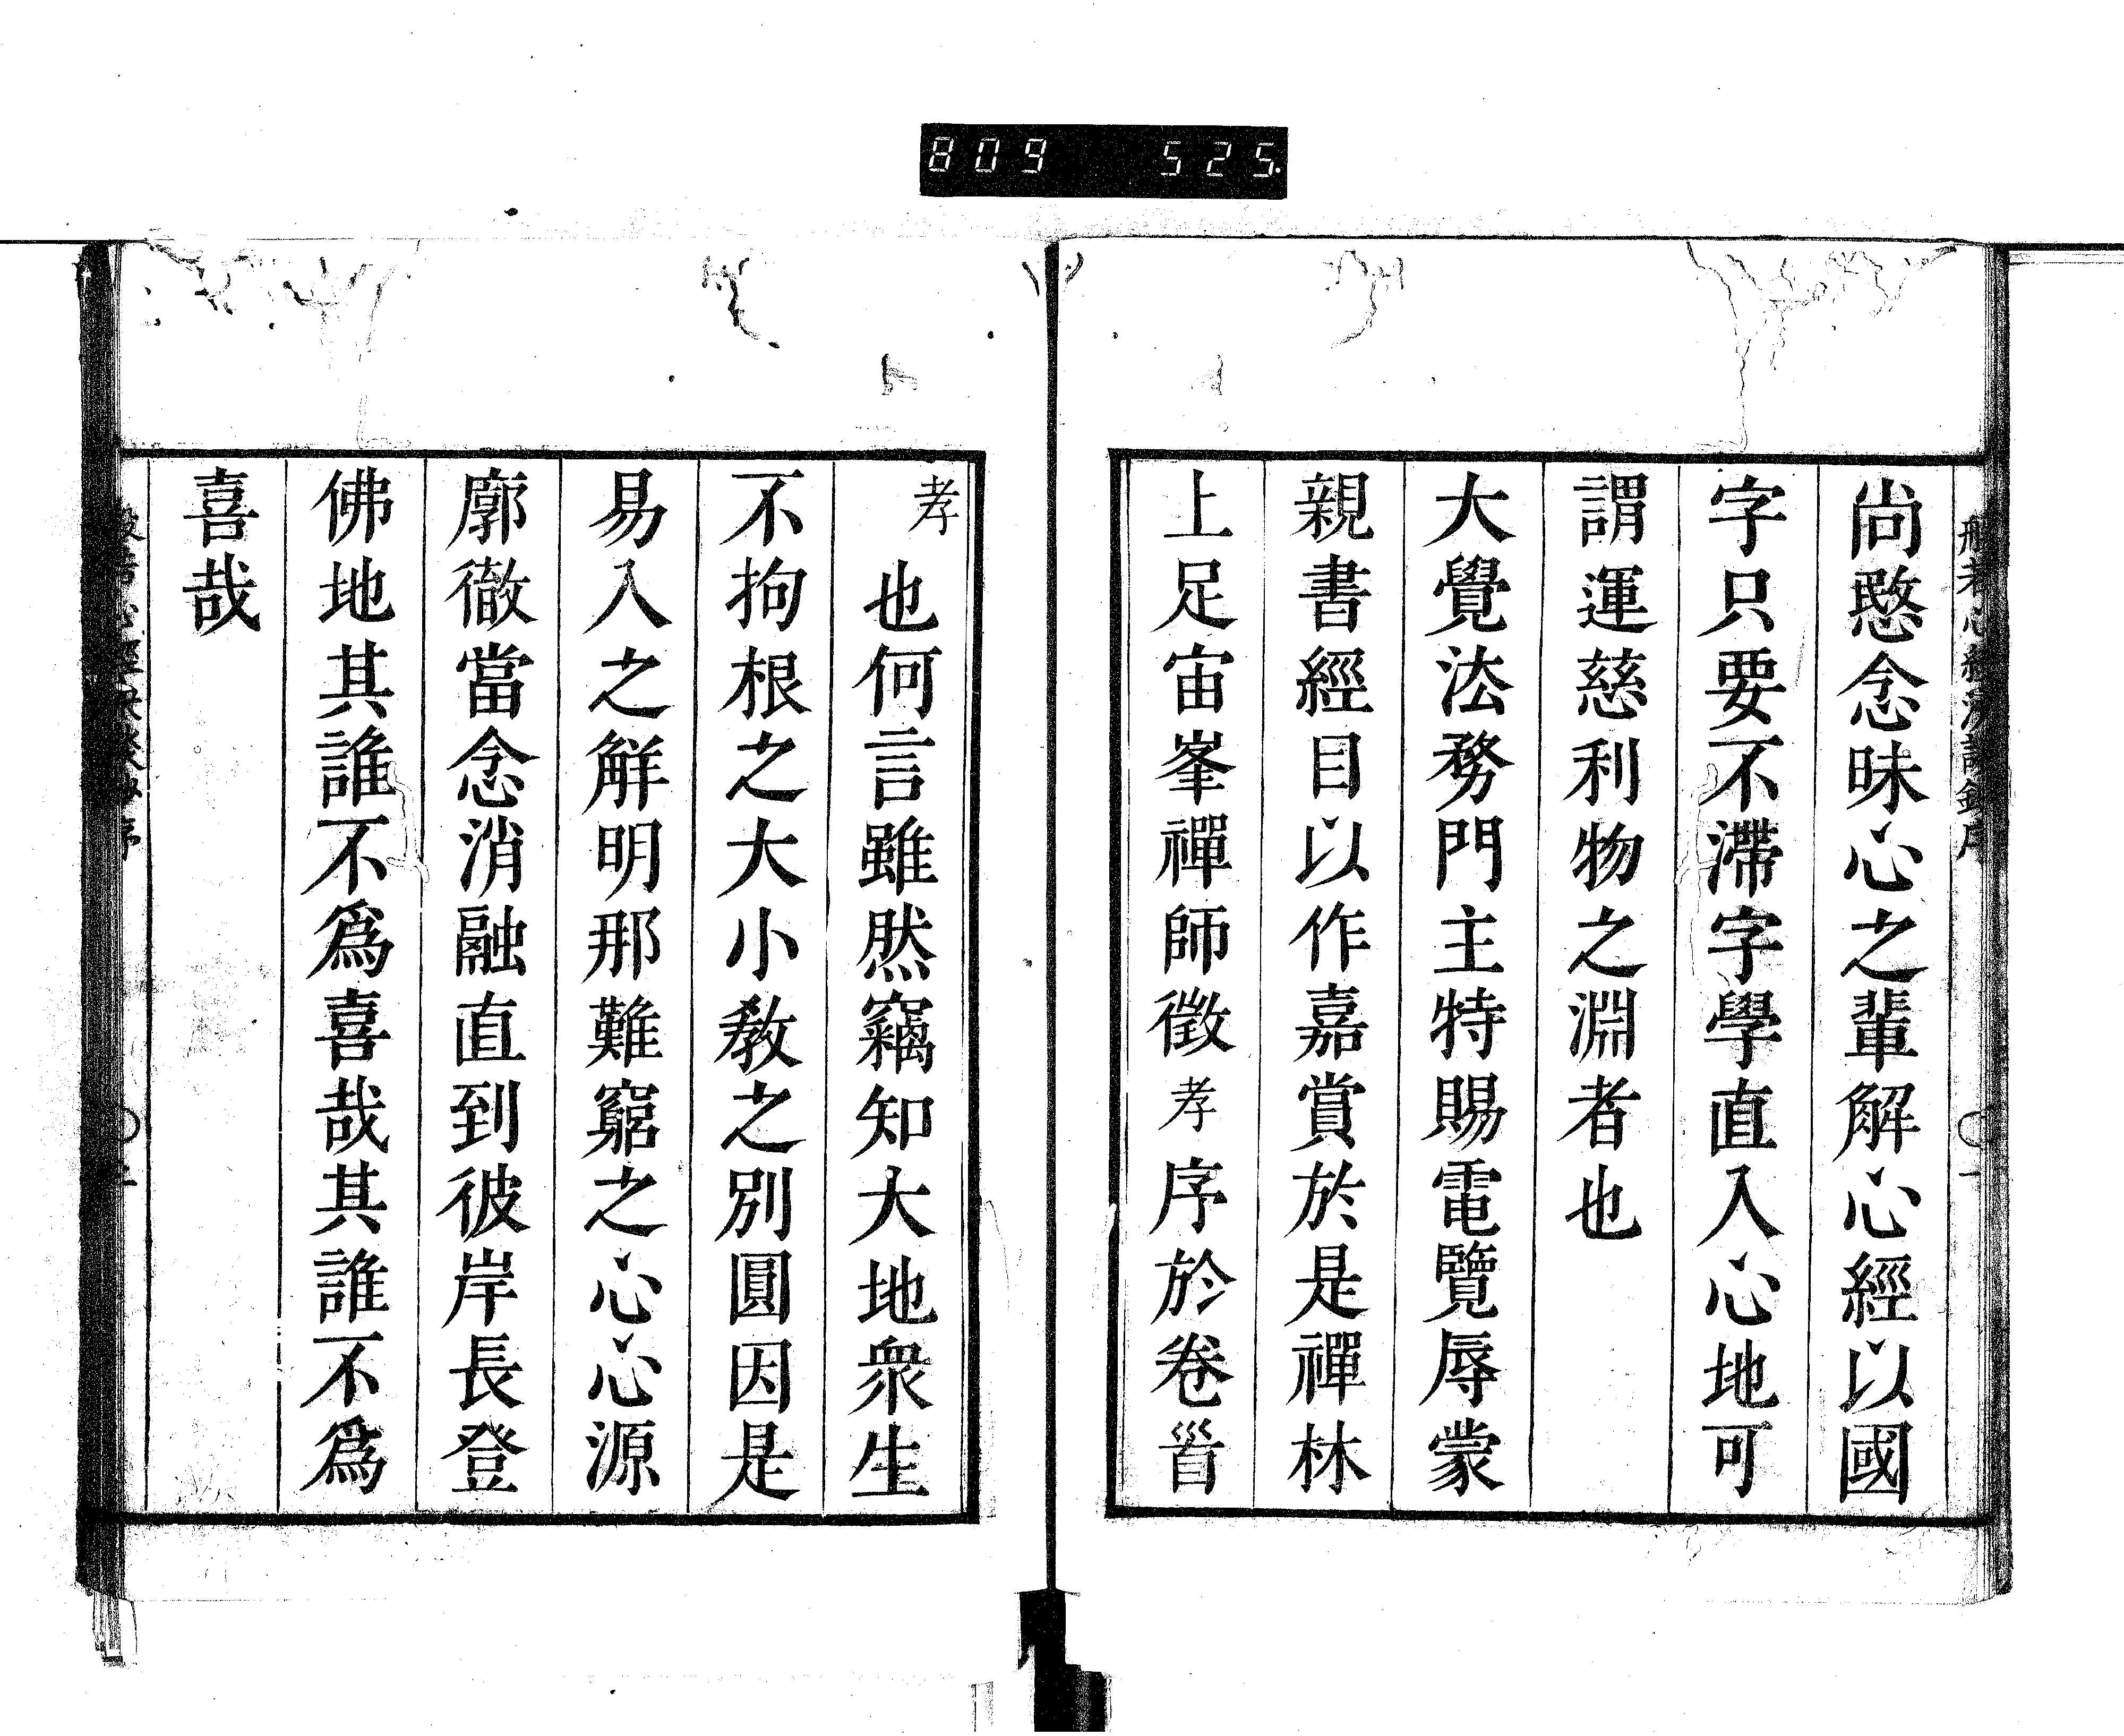 809 525.
尚愍念昧心之輩解心經以國
字只要不滯字學直入心地可
謂運慈利物之淵者也
大覺法務門主特賜電覽辱蒙
親書經目以作嘉賞於是禪林
上足宙峯禪師徵孝序於卷首
孝也何言雖然竊知大地衆生
不拘根之大小敎之別圓因是
易入之解明那難窮之心心源
廓徹當念消融直到彼岸長登
佛地其誰不爲喜哉其誰不爲
喜哉